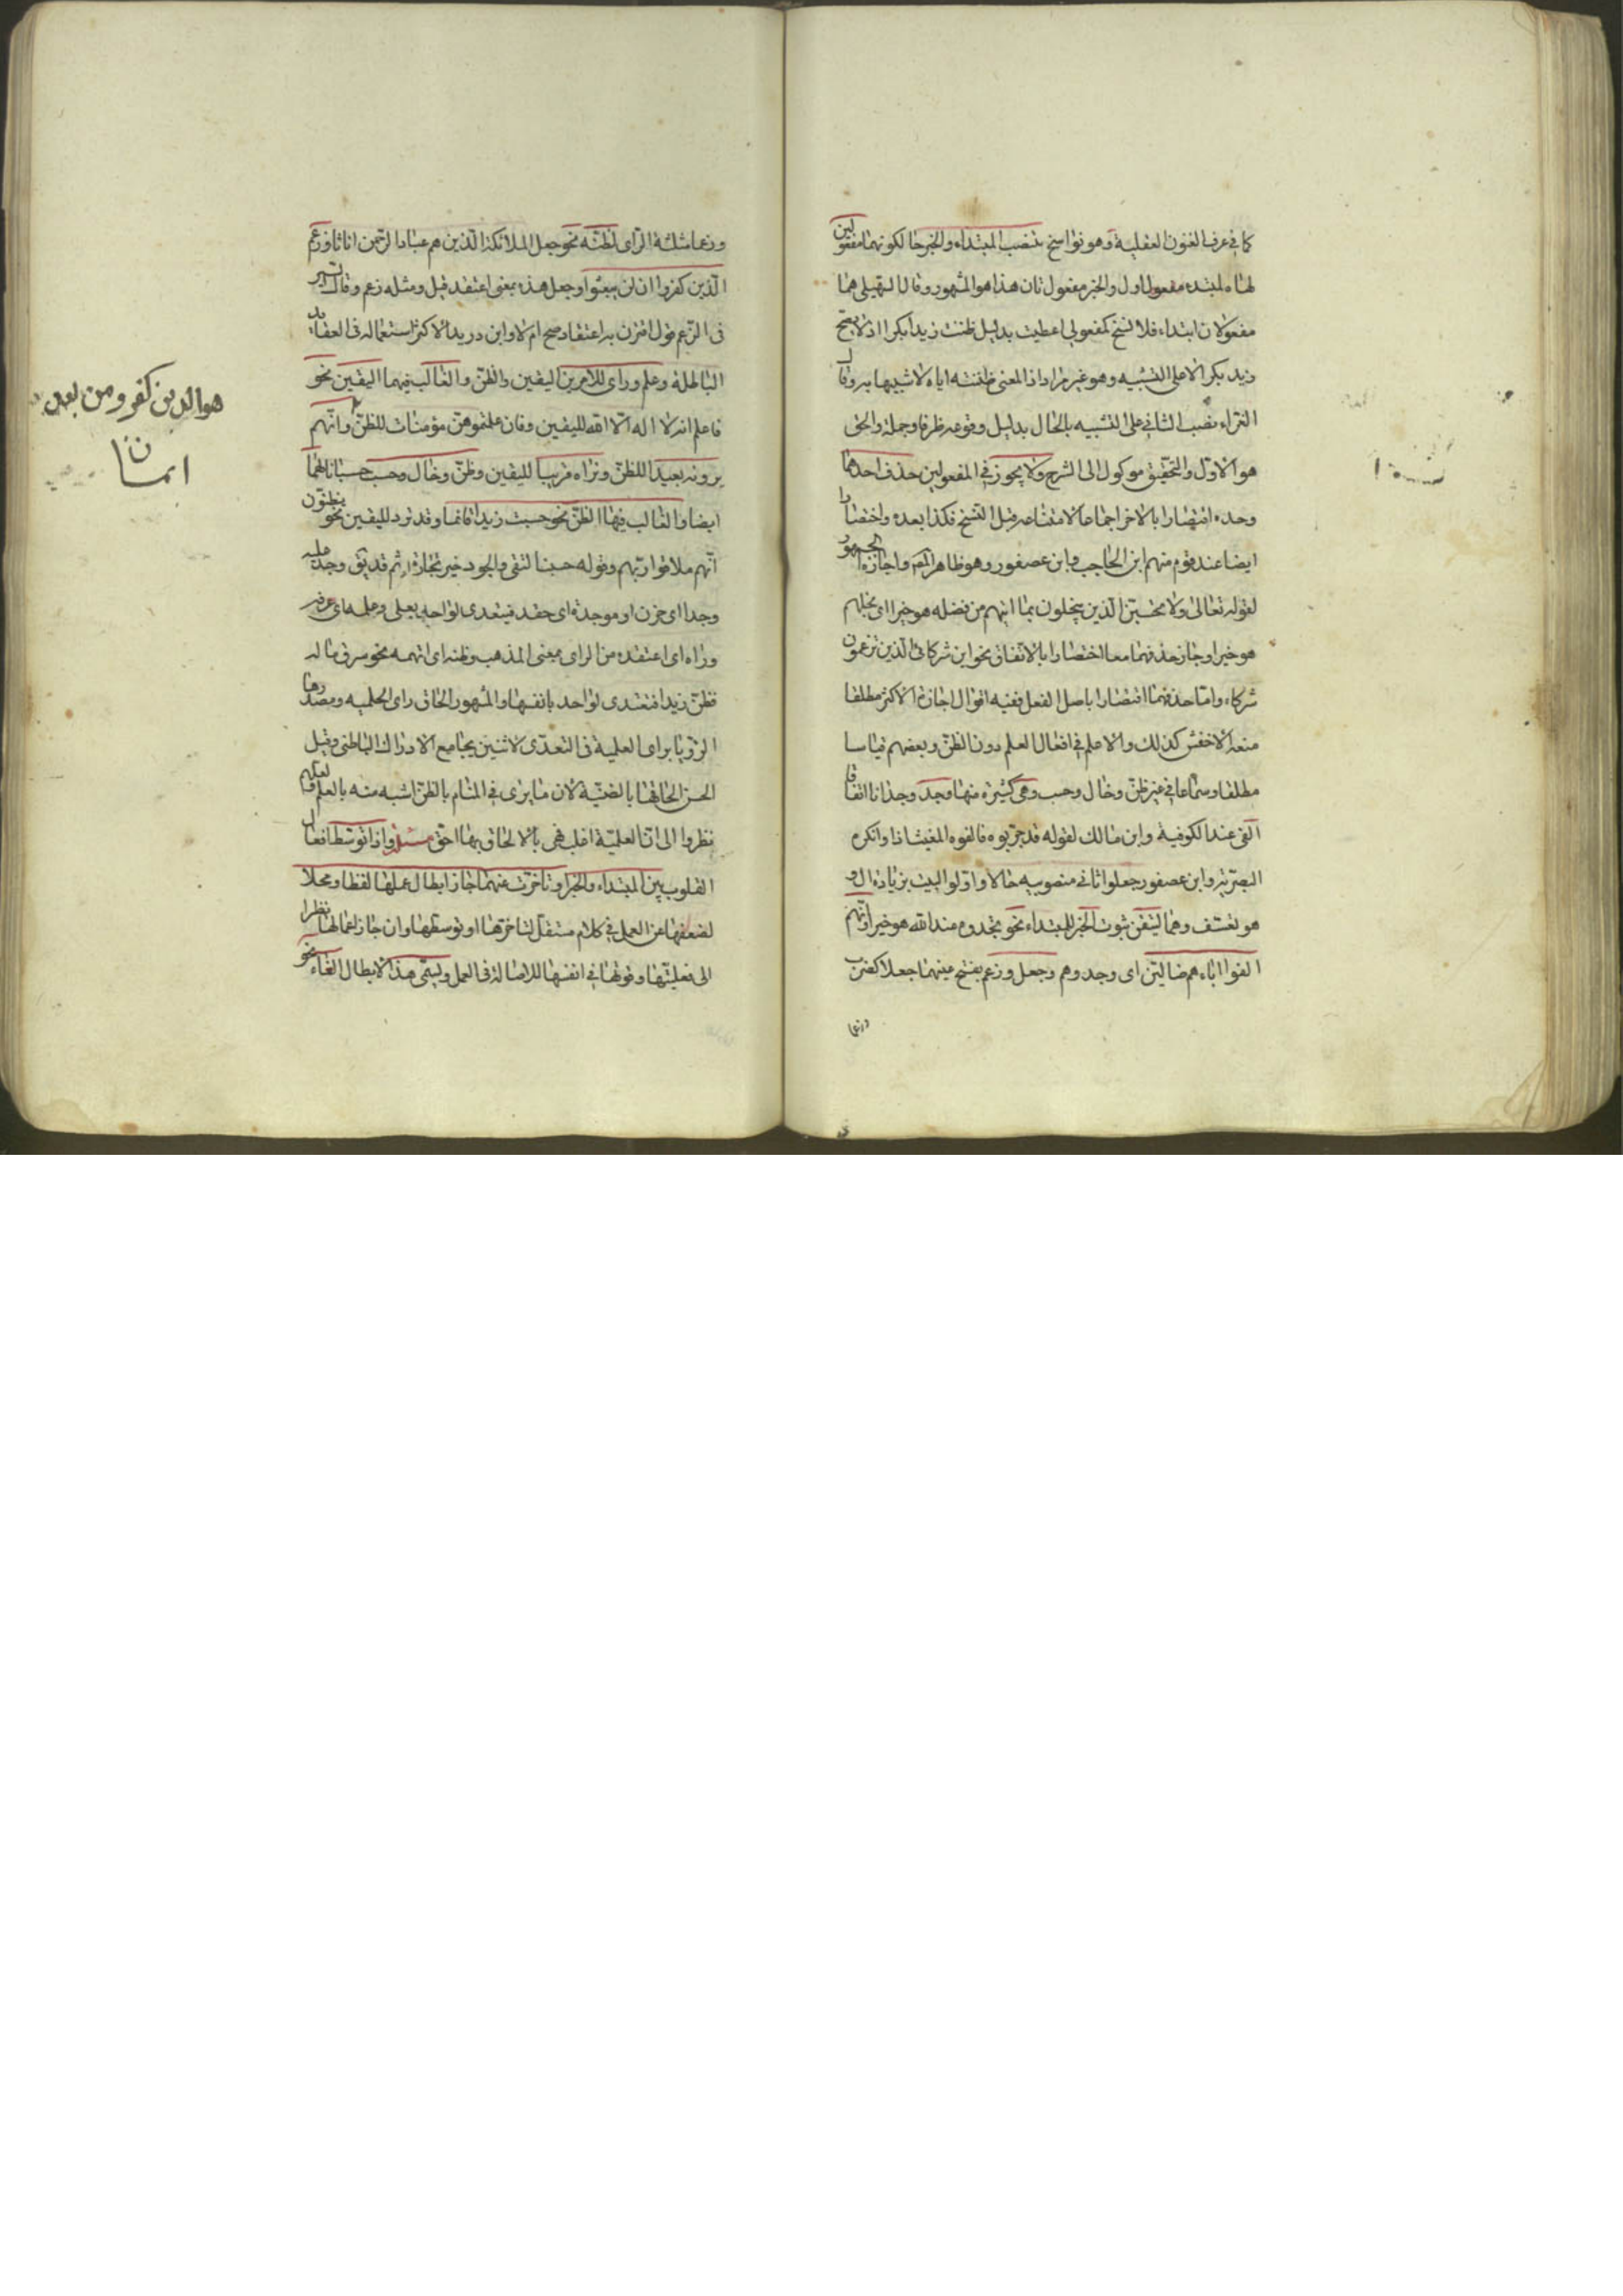 كما في عرف الفنون العقلية وهو نواسخ بنصب المبتداء والخبر حالكونهما مفعولين
لها المبتدء مفعول اول والخبر مفعول ثان هذا هو المشهور وقال السهيلى هما
مفعولان ابتداء فلا نسخ كمفعولي اعطيت بدليل ظننت زيدا بكرا اذ لا يصح
زيد بكر الا على التشبيه وهو غير مراد اذ المعنى ظننته اياه لا شبيها به وقال
الفراء نصب الثاني على التشبيه بالحال بدليل وقوعه ظرفا وجملة والحق
هو الاول والتحقيق موكول الى الشرح ولا يجوز في المفعولين حذف احدهما
وحده اقتصارا بالاخر اجماعا لامتناعه قبل النسخ فكذا بعده واختصارا
ايضا عند قوم منهم ابن الحاجب وابن عصفور وهو ظاهر المصـ واجازه الجمهور
لقوله تعالى ولا تحسبن الذين يبخلون بما اتيهم من فضله هو خيرا اى بخلهم
هو خيرا وجاز حذفهما معا اختصارا بالاتفاق نحو اين شركائى الذين تزعمون
شركاء واما حذفهما اقتصارا باصل الفعل ففيه اقوال اجازه الاكثر مطلقا
منعه الاخفش كذلك والاعلم في افعال العلم دون الظن وبعضهم قياسا
مطلقا وسماعا في غير ظن وخال وحسب وهي كثيرة منها وجد وجدانا اتفاقا
الفى عند الكوفية وابن مالك لقوله قد جربوه فالفوه المغيث اذا وانكره
البصرية وابن عصفور جعلوا ثاني منصوبيه حالا واولوا البيت بزيادة ال و
هو تعسف وهما لتيقن ثبوت الخبر للمبتداء نحو تجدوه عند الله هو خيرا وانهم
الفوا اباءهم ضالين اى وجدوهم وجعل وزعم بفتح عينهما جعلا كضرب
وزعما
وزعما مثلثة الزاى لظنه نحو جعل الملائكة الذين هم عباد الرحمن اناثا وزعم
الذين كفروا ان لن يبعثوا وجعل هذه بمعنى اعتقد قيل ومثله زعم وقال
في الزعم قول اقترن به اعتقاد صح ام لا وابن دريد الاكثر استعماله في العقايد
الباطلة وعلم وراى للامرين اليقين والظن والغالب فيهما اليقين نحو
فاعلم انه لا اله الا الله لليقين وفان علمتموهن مؤمنات للظن وانهم
يرونه بعيدا للظن ونراه قريبا لليقين وظن وخال وحسب حسبانا لهما
ايضا والغالب فيها الظن نحو حسبت زيدا قائما وقد ترد لليقين نحو يظنون
انهم ملاقوا ربهم وقوله حسبت التقى والجود خير تجارة ثم قد يق وجد عليه
وجدا اى حزن او موجدة اى حقد فيتعدى لواحد بعلى وعلمه اى عرفه
وراه اى اعتقده من الراى بمعنى المذهب وظنه اى اتهمه نحو سرق ماله
فظن زيدا فتتعدى لواحد بانفسها والمشهور الحاق راى الحلمية ومصدرها
الرؤيا براى العلمية في التعدى لاثنين بجامع الادراك الباطنى وقيل
الحق الحاقها بالظنية لان ما يرى في المنام بالظن اشبه منه بالعلم لعلهم
نظروا الى ان العلمية اغلب فهي بالالحاق بها احق مسئلة واذا توسط افعال
القلوب بين المبتداء والخبر او تاخرت عنهما جاز ابطال عملها لفظا ومحلا
لضعفها عن العمل في كلام مستقل لتاخرها او توسطها وان جاز اعمالها نظرا
الى فعليتها وقوتها في انفسها للاصالة في العمل ويسمى هذا الابطال الغاء نحو
هو الدين كفرو من بعد
ايمانا